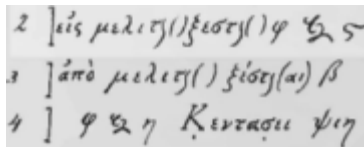 2 ]εἰς μελιτζ( ) ξεστζ( ) φ ϗ ς
3 ]ἀπὸ μελιτζ( ) ξέστζ(αι) β
4 ] φ ϗ η Κ̣εντασιι ψιη